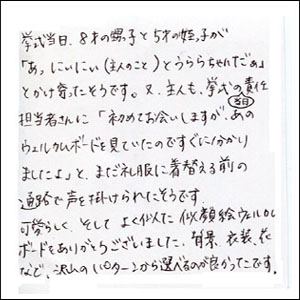 挙式当日、8才の甥っ子と5才の姪っ子が
「あっ にいにい(主人のこと)とうららちゃんだぁ」
とかけ寄ったそうです。又、主人も、挙式の責任
担当者さんに「初めてお会いしますが、当日あの
ウェルカムボードを見ていたのですぐに分かり
ましたよ」と、まだ礼服に着替える前の
通路で声を掛けられたそうです
可愛らしく、そして よく似た 似顔絵ウェルカム
ボードをありがとうございました。背景、衣装、花
など、沢山のパターンから選べるのが良かったです。